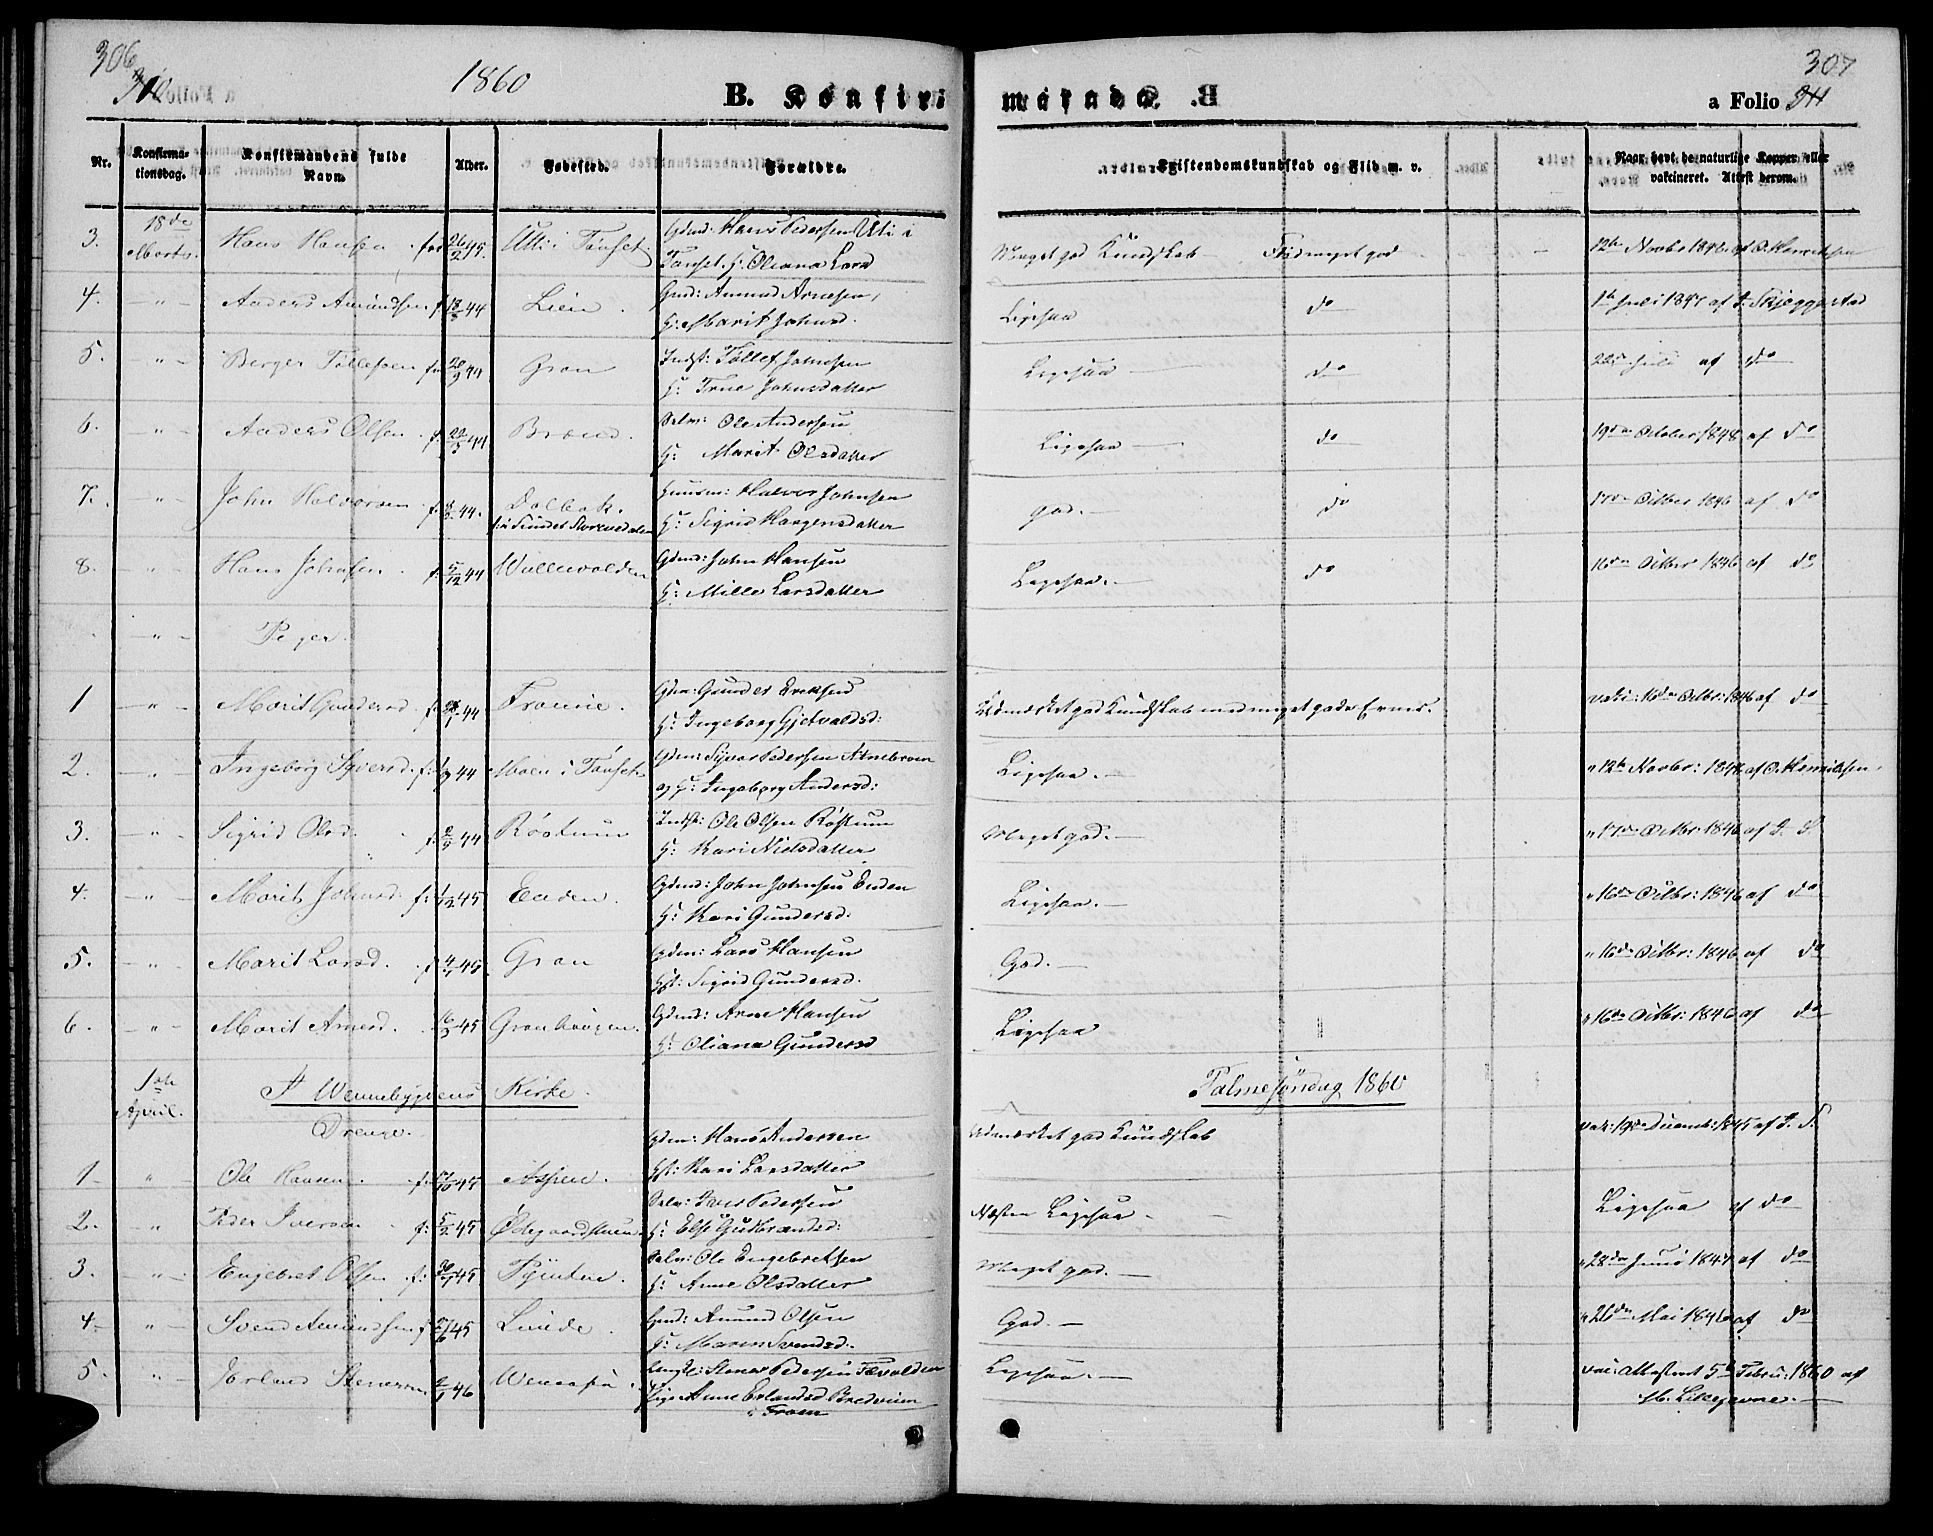 306
310
1860
B. Konfir-
Nr.
Konfirma-
tionsdag.
Konfirmandens fulde
Navn.
Alder.
Fødested.
Forældre.
3. 18de Marts. Hans Hansen. fød 26/2 45. Utti i Tønset. Gdmd: Hans Pedersen Uti i
Tønset. H: Oliana Larsd
4. " Anders Amundsen f: 44 Lien. Gmd: Amund Arnesen,
H: Marit Johnsd.
5. " Berger Tollefsen f: 20/9 44 Gron Indst: Tollef Johnsen
H: Trne Johnsdatter
6. " Anders Olsen. f: 44 Brænd. Selv: Ole Andersen
H: Marit Olsdatter
7. " John Halvorsen f: 44. Dolbak. Huusm: Halvor Johnsen
H: Sigrid Haagensdatter
8. " Hans Johnsen. f: 5/12 44 Wullewolden Gdmd: John Hansen
H: Mille Larsdatter
" Piger.
1 " Marit Gundersd. f: 44 Fronne. Gdm: Gunder Eriksen
H: Ingeborg Gjetvaldsd:
2. " Ingeborg Syversd. f: 44 Moen i Tønset Gdm: Syver Pedersen Atnebroen
og H: Ingeborg Andersd:
3. " Sigrid Olsd. f: 44 Røstum Indst: Ole Olsen Røstum
H: Kari Nielsdatter
4. " Marit Johnsd. f: 45 Enden. Gdmd: John Johnsen Enden
H: Kari Gundersd.
5. " Marit Larsd. f 45 Gron Gdm: Lars Hansen
Hst: Sigrid Gundersd.
6. " Marit Arnesd. 45 Gronhaugen. Gdmd: Arne Hansen
H: Oliana Gundersd
1ste April. I Wennebygdens Kirke.
Drenge.
1 " Ole Hansen. f: 45 Aspen. Gdm: Hans Andersen
Hst: Kari Larsdatter
2. " Peder Iversen f: 45 Ødegaardstuen Selv: Iver Pedersen
H: Else Gudbrandsd:
3. " Engebret Olsen f: 45 Pynten. Selv: Ole Engebretsen
H: Anne Olsdatter
4. " Svend Amundsen f 45 Linde. Gmd: Amund Olsen
H: Maren Svendsd.
5. " Stenersen 46 Stener Pedersen
Pige Anne Erlandsd Bredviim
i From
307
311
merede. B.
a Folio
Kristendomskundskab og Flid m. v.
Naar havt de naturlige Kopper eller
vakcineret. Attest derom.
Meget god Kundskab — Flid meget god — 12te Novbr 1846 af O. Henriksen
Ligesaa do 1te Juli 1847 af J. Skjeggestad
Ligesaa — do Juli af do
Ligesaa — do 19de October 1848 af do
god. — do 17de Octber 1846 af do
Ligesaa. — do 16de Octber 1846 af do
Udmærket god Kundskab med meget gode Evner. vak: 16de Octbr: 1846 af do
Ligesaa. — " 12te Novbr: 1846 af O. Henriksen.
Meget god. — " 17de Octbr: 1846 af J. S.
Ligesaa. — " 16de Octbr: 1846 af do
God. — " 16de Octbr: 1846 af do
Ligesaa " 16de Octbr: 1846 af do
Palmesøndag 1860
Udmærket god Kundskab vak: 19de Decemb: 1845 af J. S.
Næsten Ligesaa. — Ligesaa af do
Meget god. — " 28de Juni 1847 af do
God. — " 26de Mai 1846 af do
Ligesaa. — vac: Attesteret 5te Febru: 1860 af